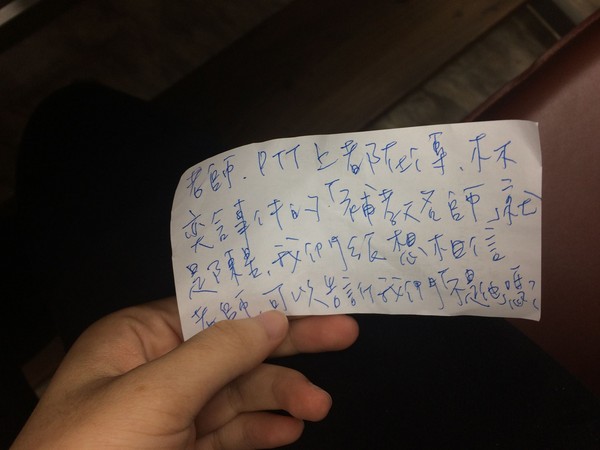 老師.PTT上都在傳.林
奕含事件的「補教名師」就
是陳星.我們很想相信
老師.可以告訴我們「不是他嗎?